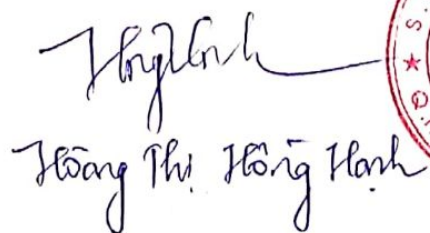 Hoàng Thị Hồng Hạnh